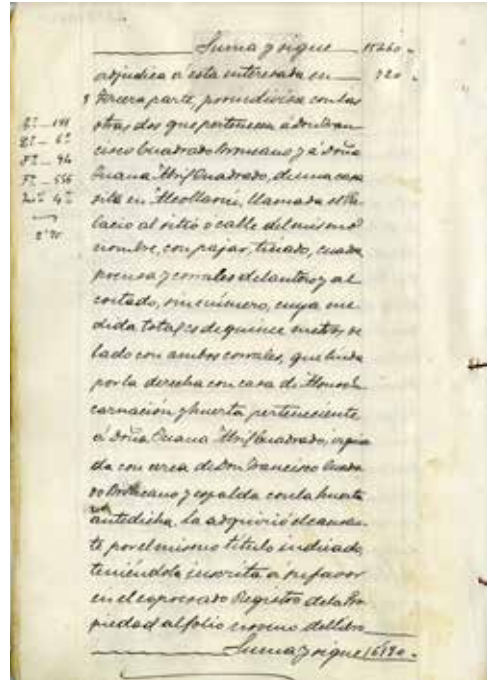 Suma y sigue 15260 "
adjudica á esta interesada en 920 "
8 tercera parte, proindivisa con las
otras dos que pertenecen á don Fran
cisco Cuadrado Broncano y á doña
Juana Abril Cuadrado, de una casa
sita en llamada el Pa
lacio al sitio ó calle del mismo
nombre, con pajar, tinado, cuadra
prensa y corrales delantero y al
costado, sin número, cuya me
dida total es de quince metros de
lado con ambos corrales, que linda
por la derecha con casa de
carnación y huerta perteneciente
á doña Juana Abril Cuadrado, izquier
da con cerca de Don Francisco Cuadra
do Broncano y espalda con la huerta
antedicha. La adquirió el causan
te por el mismo título indicado,
teniéndola inscrita á su favor
en el expresado Registro de la Pro
piedad al folio noveno del libro
Suma y sigue 16180 "